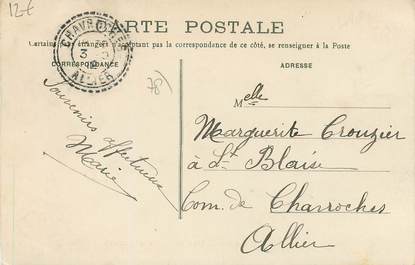 12€
CARTE POSTALE
Certains pays étrangers n'acceptant pas la correspondance de ce côté, se renseigner à la Poste
CORRESPONDANCE
ADRESSE
CHAVROCHES
3
12
ALLIER
78
Souvenirs affectueux
Marie
Melle
Marguerite Crouzier
à St Blaise
Com. de Chavroches
Allier